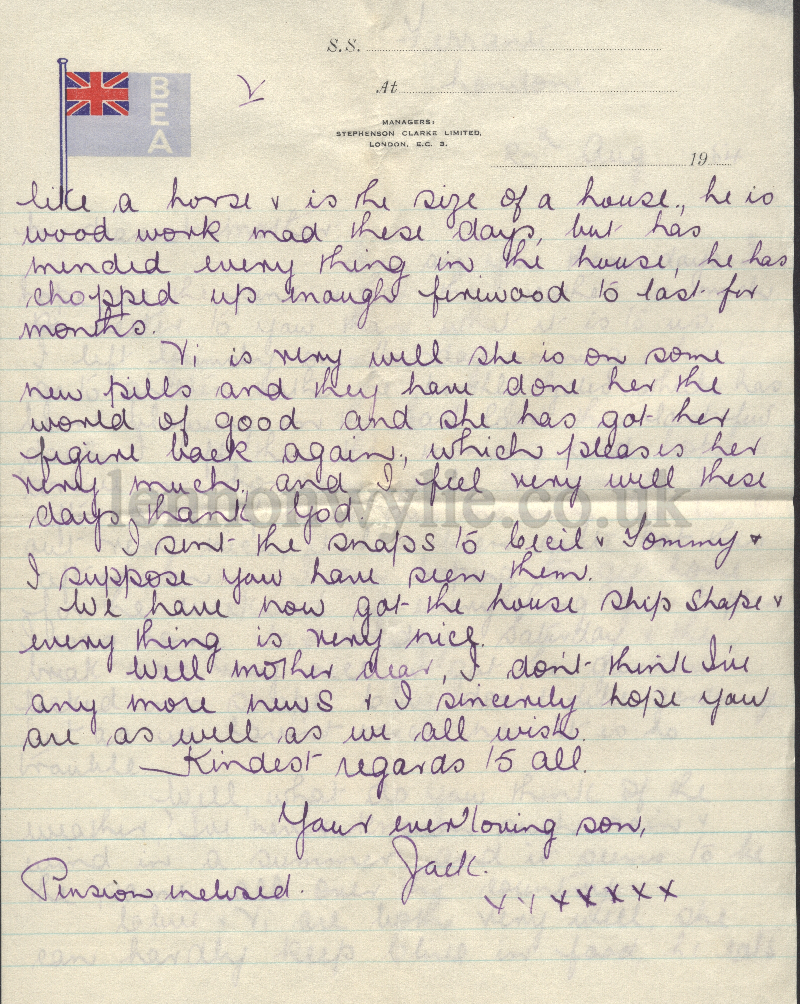 S.S.
BEA
At
MANAGERS:
STEPHENSON CLARKE LIMITED,
LONDON, E.C. 3.
19
like a horse & is the size of a house., he is
wood work mad these days, but has
mended every thing in the house, he has
chopped up enough firewood to last for
months.
Vi is very well she is on some
new pills and they have done her the
world of good and she has got her
figure back again, which pleases her
very much, and I feel very well these
lennonwylie.co.uk
days thank God.
I sent the snaps to Cecil & Tommy &
I suppose you have seen them.
We have now got the house ship shape &
every thing is very nice.
Well mother dear, I don't think I've
any more news & I sincerely hope you
are as well as we all wish.
Kindest regards to all.
Your ever loving son,
Jack.
Pension inclosed.
x x x x x x x